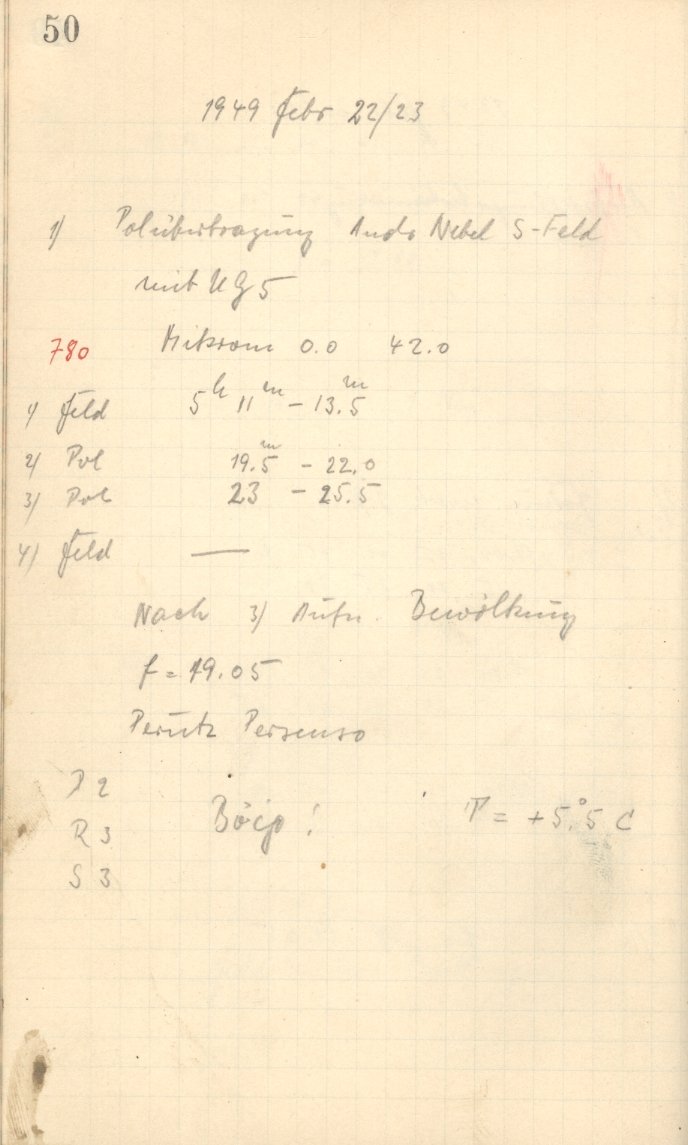 50
1949 Febr 22/23
1) Polübertragung Andr Nebel S-Feld
mit UG5
780 Mikrom 0.0 42.0
1) Feld 5h 11m - 13.5m
2) Pol 19.5m - 22.0
3) Pol 23 - 25.5
4) Feld —
Nach 3) Aufn. Bewölkung
f = 19.05
Perutz Persenso
D 2
R 3 Böig! T = +5.°5 C
S 3